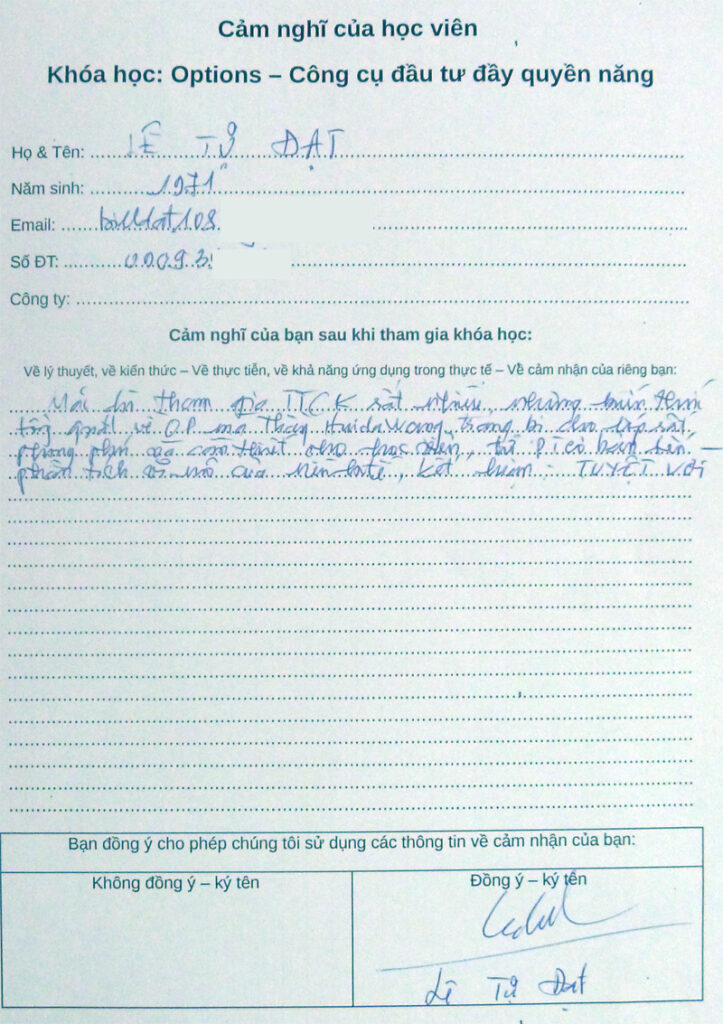 Cảm nghĩ của học viên
Khóa học: Options – Công cụ đầu tư đầy quyền năng
Họ & Tên: LÊ TỰ ĐẠT
Năm sinh: 1971
Email: billdat108
Số ĐT: 00093
Công ty:
Cảm nghĩ của bạn sau khi tham gia khóa học:
Về lý thuyết, về kiến thức – Về thực tiễn, về khả năng ứng dụng trong thực tế – Về cảm nhận của riêng bạn:
tham gia TTCK rất nhiều, nhưng kiến thức
tổng quát về O.P mà Thầy Huida Wong trang bị cho lớp rất
phong phú và cần thiết cho học viên,
phân tích vĩ mô của nền k.tế, kết luận: TUYỆT VỜI
Bạn đồng ý cho phép chúng tôi sử dụng các thông tin về cảm nhận của bạn:
Không đồng ý – ký tên
Đồng ý – ký tên
Lê Tự Đạt